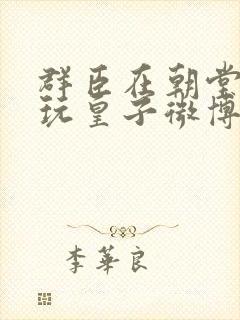 群臣在朝堂
玩皇子微博
李華良